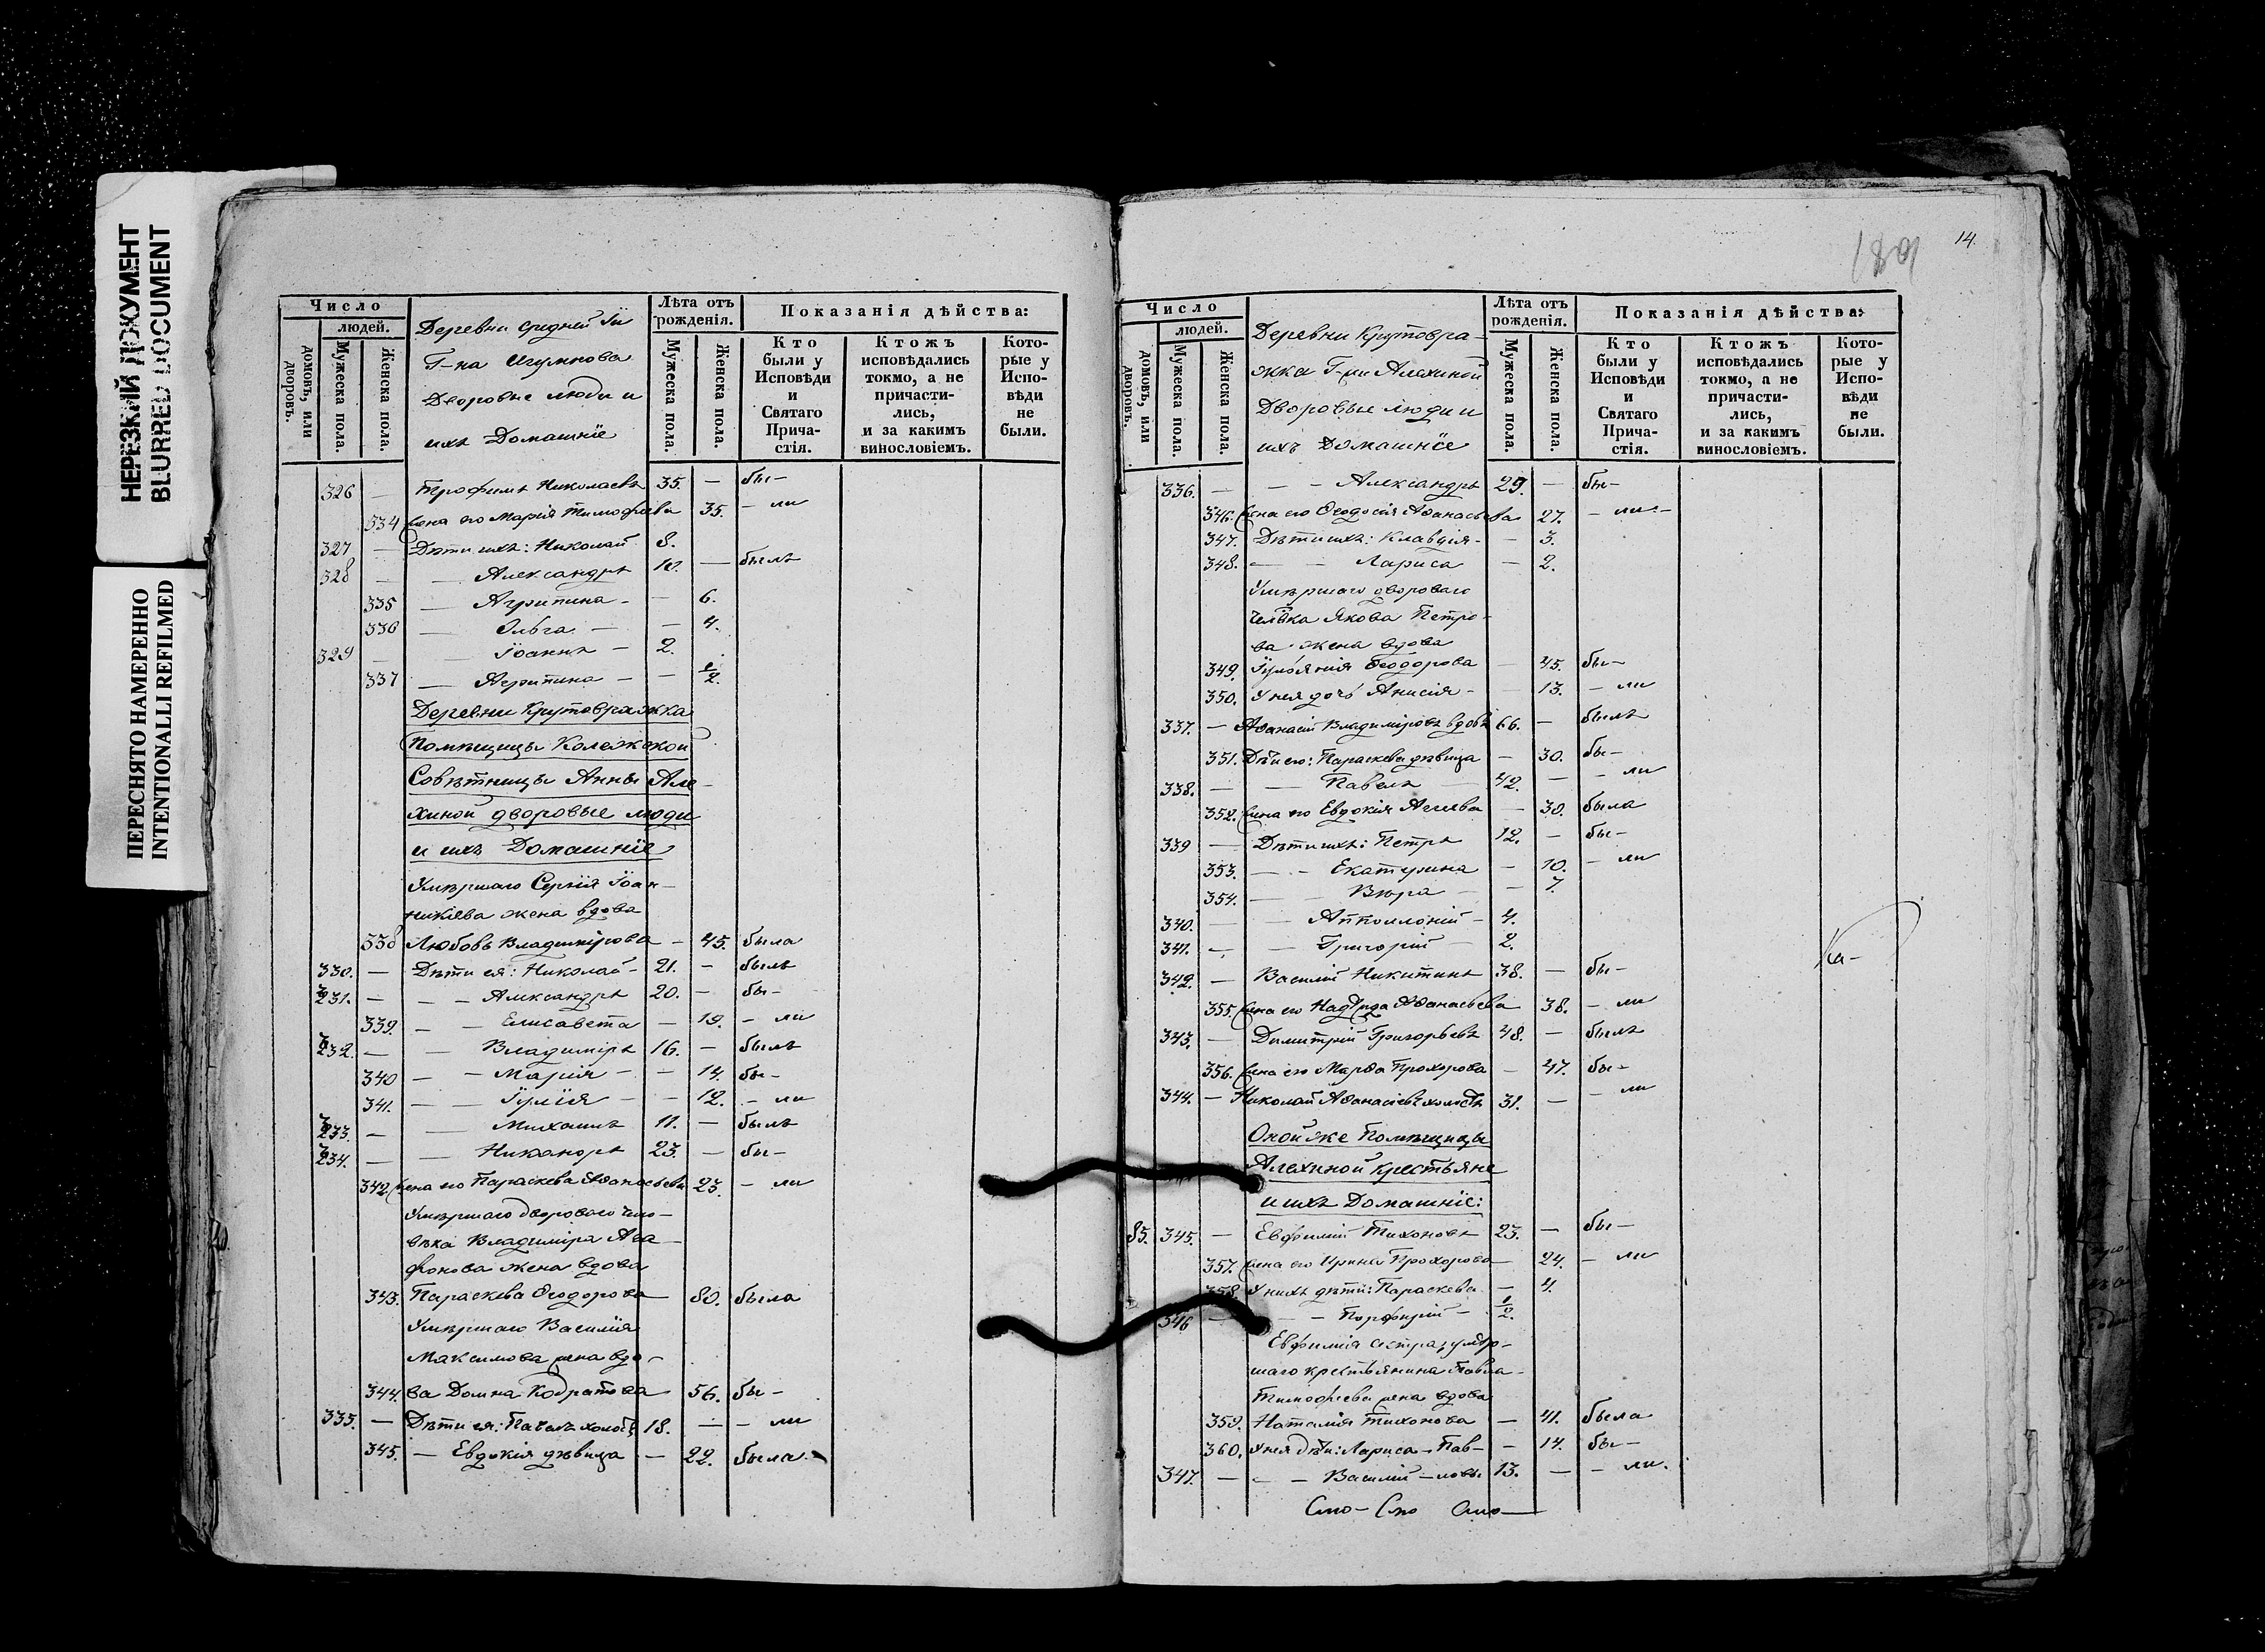 НЕРЕЗКИЙ ДОКУМЕНТ
BLURRED DOCUMENT
ПЕРЕСНЯТО НАМЕРЕННО
INTENTIONALLI REFILMED
Число
людей.
домовъ, или дворовъ.
Мужеска пола.
Женска пола.
Деревни средней
Г-на Игумнова
Дворовые люди и
ихъ Домашніе
Лѣта отъ рожденія.
Мужеска пола.
Женска пола.
Показанія дѣйства:
Кто были у Исповѣди и Святаго Прича-стія.
Ктожъ исповѣдались токмо, а не причасти-лись, и за какимъ винословіемъ.
Кото-рые у Испо-вѣди не были.
326 — Трофимъ Николаевъ 35. — бы-
334 жена его Марія Тимофѣева 35. - ли
327 — Дѣти ихъ: Николай 8.
328 — — Александръ 10. — былъ
335 — Агрипина - — 6.
336 — Ольга — — 4.
329 — — Іоаннъ — 2.
337 — Агрипина — — 1/2.
Деревни Крутовражка
Помѣщицы Колежской
Совѣтницы Анны Але-
хиной дворовые люди
и ихъ Домашніе
Умѣршаго Сергія Іоан-
никіева жена вдова
338 Любовь Владимірова - 45. была
330. — Дѣти ея: Николай - 21. - былъ
331. — — - Александръ 20. - бы-
339. — - Елисавета — 19. - ли
332. — — Владиміръ 16. - былъ
340 — - Марія - - 14. бы-
341. — — Іулія — - 12. - ли
333. — — Михаилъ 11. - былъ
334. — — Никаноръ 23. - бы-
342. жена его Параскева Аѳанасьева 23. - ли
Умѣршаго двороваго чело-
вѣка Владиміра Ага-
фонова жена вдова
343. Параскева Ѳеодорова 80. была
Умѣршаго Василія
Максимова жена вдо-
344. ва Домна Кодратова 56. бы-
335. — Дѣти ея: Павелъ холостъ 18. — - ли
345. — Евдокія дѣвица — 22. была
189 14.
Число
людей.
домовъ, или дворовъ.
Мужеска пола.
Женска пола.
Деревни Крутовра-
жка Г-жи Алехиной
Дворовые люди и
ихъ Домашніе
Лѣта отъ рожденія.
Мужеска пола.
Женска пола.
Показанія дѣйства:
Кто были у Исповѣди и Святаго Прича-стія.
Ктожъ исповѣдались токмо, а не причасти-лись, и за какимъ винословіемъ.
Кото-рые у Испо-вѣди не были.
336. — — - Александръ 29. — бы-
346. жена его Ѳеодосія Аѳанасьева 27. - ли-
347. Дѣти ихъ: Клавдія - — 3.
348. — — Лариса — 2.
Умѣршаго двороваго
челѣка Якова Петро-
ва жена вдова
349. Ѳеодорова — 45. бы-
350. У нея дочь Анисія - 13. - ли
337. — Аѳанасій Владиміровъ вдовъ 66. — былъ
351. Дѣти его: Параскева дѣвица — 30. бы-
338. — — Павелъ — 42. — - ли
352. жена его Евдокія — 30. была
339 — Дѣти ихъ: Петръ 12. - бы-
353. — - Екатерина — 10. - ли
354. — — Вѣра — - 7.
340. — — Апполлоній - 4.
341. — — Григорій — 2.
342. — Василій Никитинъ 38. — бы-
355. жена его Надежда Аѳанасьева 38. - ли
343. — Димитрій Григорьевъ 48. - былъ
356. жена его Марѳа Прохорова — 47. бы-
344. — Николай Аѳанасіевъ холостъ 31. — - ли
Оной же Помѣщицы
Алехиной крестьяне
и ихъ Домашніе:
85. 345. — Евфимій Тихоновъ 23. — бы-
357. жена его Ирина Прохорова — 24. - ли
358. У нихъ дѣти: Параскева - — 4.
346 — — - Порфирій - 1/2.
Евфимія сестра, умѣр-
шаго крестьянина Павла
Тимофеева жена вдова
359. Наталія Тихонова — 41. была
360. У нея дѣти: Лариса - Пав- — 14. бы-
347. — — - Василій - ловы 13. — - ли.
Ка-